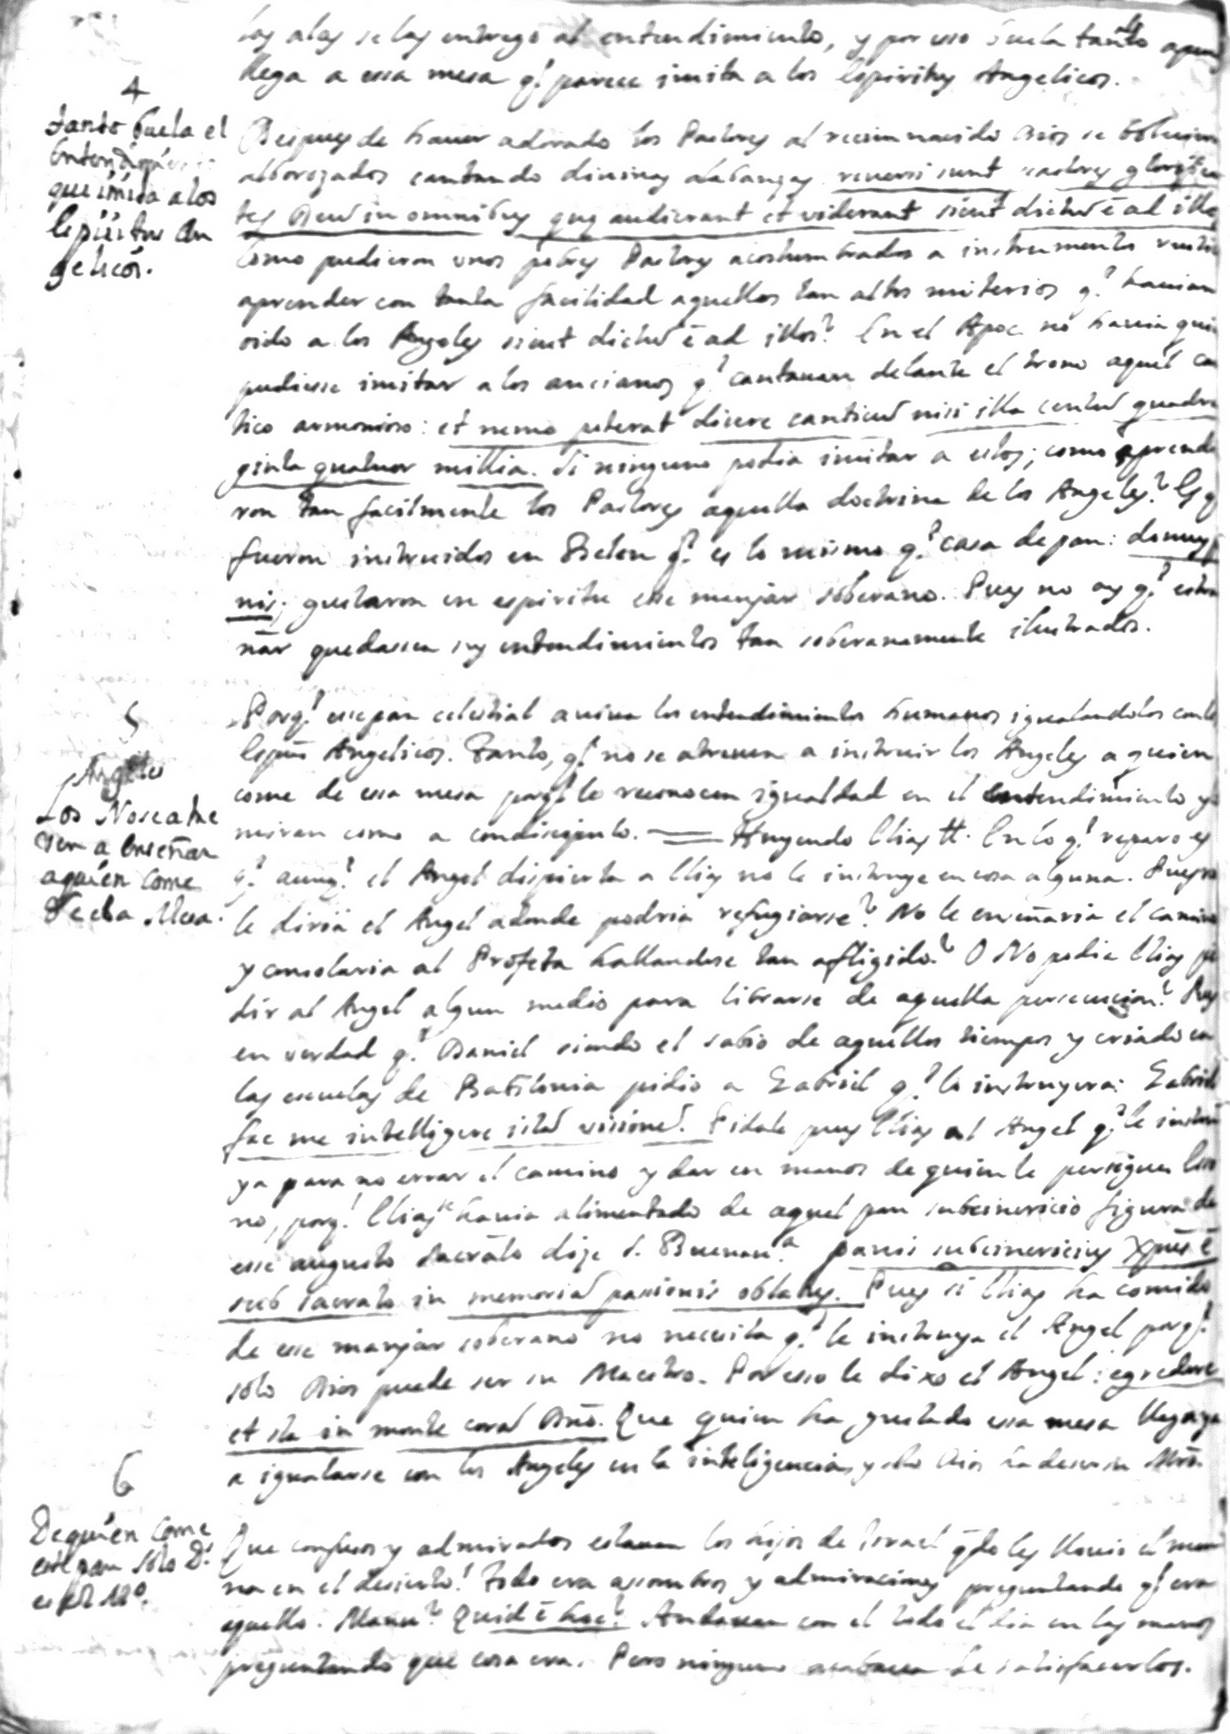 las alas se las entrego al entendimiento, y por esso buela tanto
llega a essa mesa q.e parece imita a los Espiritus Angelicos.
4
tanto buela el
que imita a los
Espiritus An
gelicos.
Despues de hauer adorado los Pastores al recien nacido Dios se boluieron
alborozados cantando divinas alabanzas reuersi sunt Pastores glorifican
tes Deũ in omnibus quę audierant et viderant sicut dictũ ẽ ad illos
Como pudieron unos pobres Pastores acostumbrados a instrumentos
aprender con tanta facilidad aquellos tan altos misterios q.e hauian
oido a los Angeles sicut dictũ ẽ ad illos? En el Apoc. no hauia quien
pudiesse imitar a los ancianos q.e cantauan delante el trono aquel can
tico armonioso: et nemo poterat dicere canticũ nisi illa centũ quadra
ginta quatuor millia. Si ninguno podia imitar a estos; como aprendie
ron tan facilmente los Pastores aquella doctrina de los Angeles?
fueron instruidos en Belen q.e es lo mismo q.e casa de pan: domus
nis; gustaron en espiritu esse manjar soberano. Pues no ay q.e estra
ñar quedassen sus entendimientos tan soberanamente ilustrados.
5
Angeles
Los No se atre
ven a Enseñar
a quien come
de esta Mesa.
Porq.e esse pan celestial auiua los entendimientos humanos igualandolos con los
Espũs Angelicos. Tanto, q.e no se atreuen a instruir los Angeles a quien
come de essa mesa porq.e le reconocen igualdad en el entendimiento y le
miran como a condiscipulo. == Huyendo Elias tt. En lo q.e reparo es
q.e aunq.e el Angel dispierta a Elias no le instruye en cosa alguna. Pues no
le diria el Angel adonde podria refugiarse? No le enseñaria el camino
y consolaria al Profeta hallandose tan afligido? O No podia Elias pe
dir al Angel algun medio para librarse de aquella persecucion? Pues
en verdad q.e Daniel siendo el sabio de aquellos tiempos y criado en
las escuelas de Babilonia pidio a Gabriel q.e lo instruyera: Gabriel
fac me intelligere istã visionẽ. Pidale pues Elias al Angel q.e le instru
ya para no errar el camino y dar en manos de quien le persigue. Esso
no, porq.e Elias se hauia alimentado de aquel pan subcinericio figura de
esse augusto Sacrãto dixe S. Buenau.a panis subcinericius Xpũs ẽ
sub sacrato in memoriã passionis oblatus. Pues si Elias ha comido
de esse manjar soberano no necesita q.e le instruya el Angel porq.e
solo Dios puede ser su Maestro. Por esso le dixo el Angel: egredere
et sta in monte corã Dño. Que quien ha gustado essa mesa llega ya
a igualarse con los Angeles en la inteligencia, y solo Dios ha de ser su Mrõ.
6
De quien come
este pan solo D.s
es el M.o
Que confusos y admirados estauan los hijos de Israel qdo les llouio el man
na en el desierto! Todo era assombros y admiraciones preguntando q.e era
aquello. Manu? Quid ẽ hoc? Andauan con el todo el dia en las manos
preguntando que cosa era. Pero ninguno acabaua de satisfacerlos.